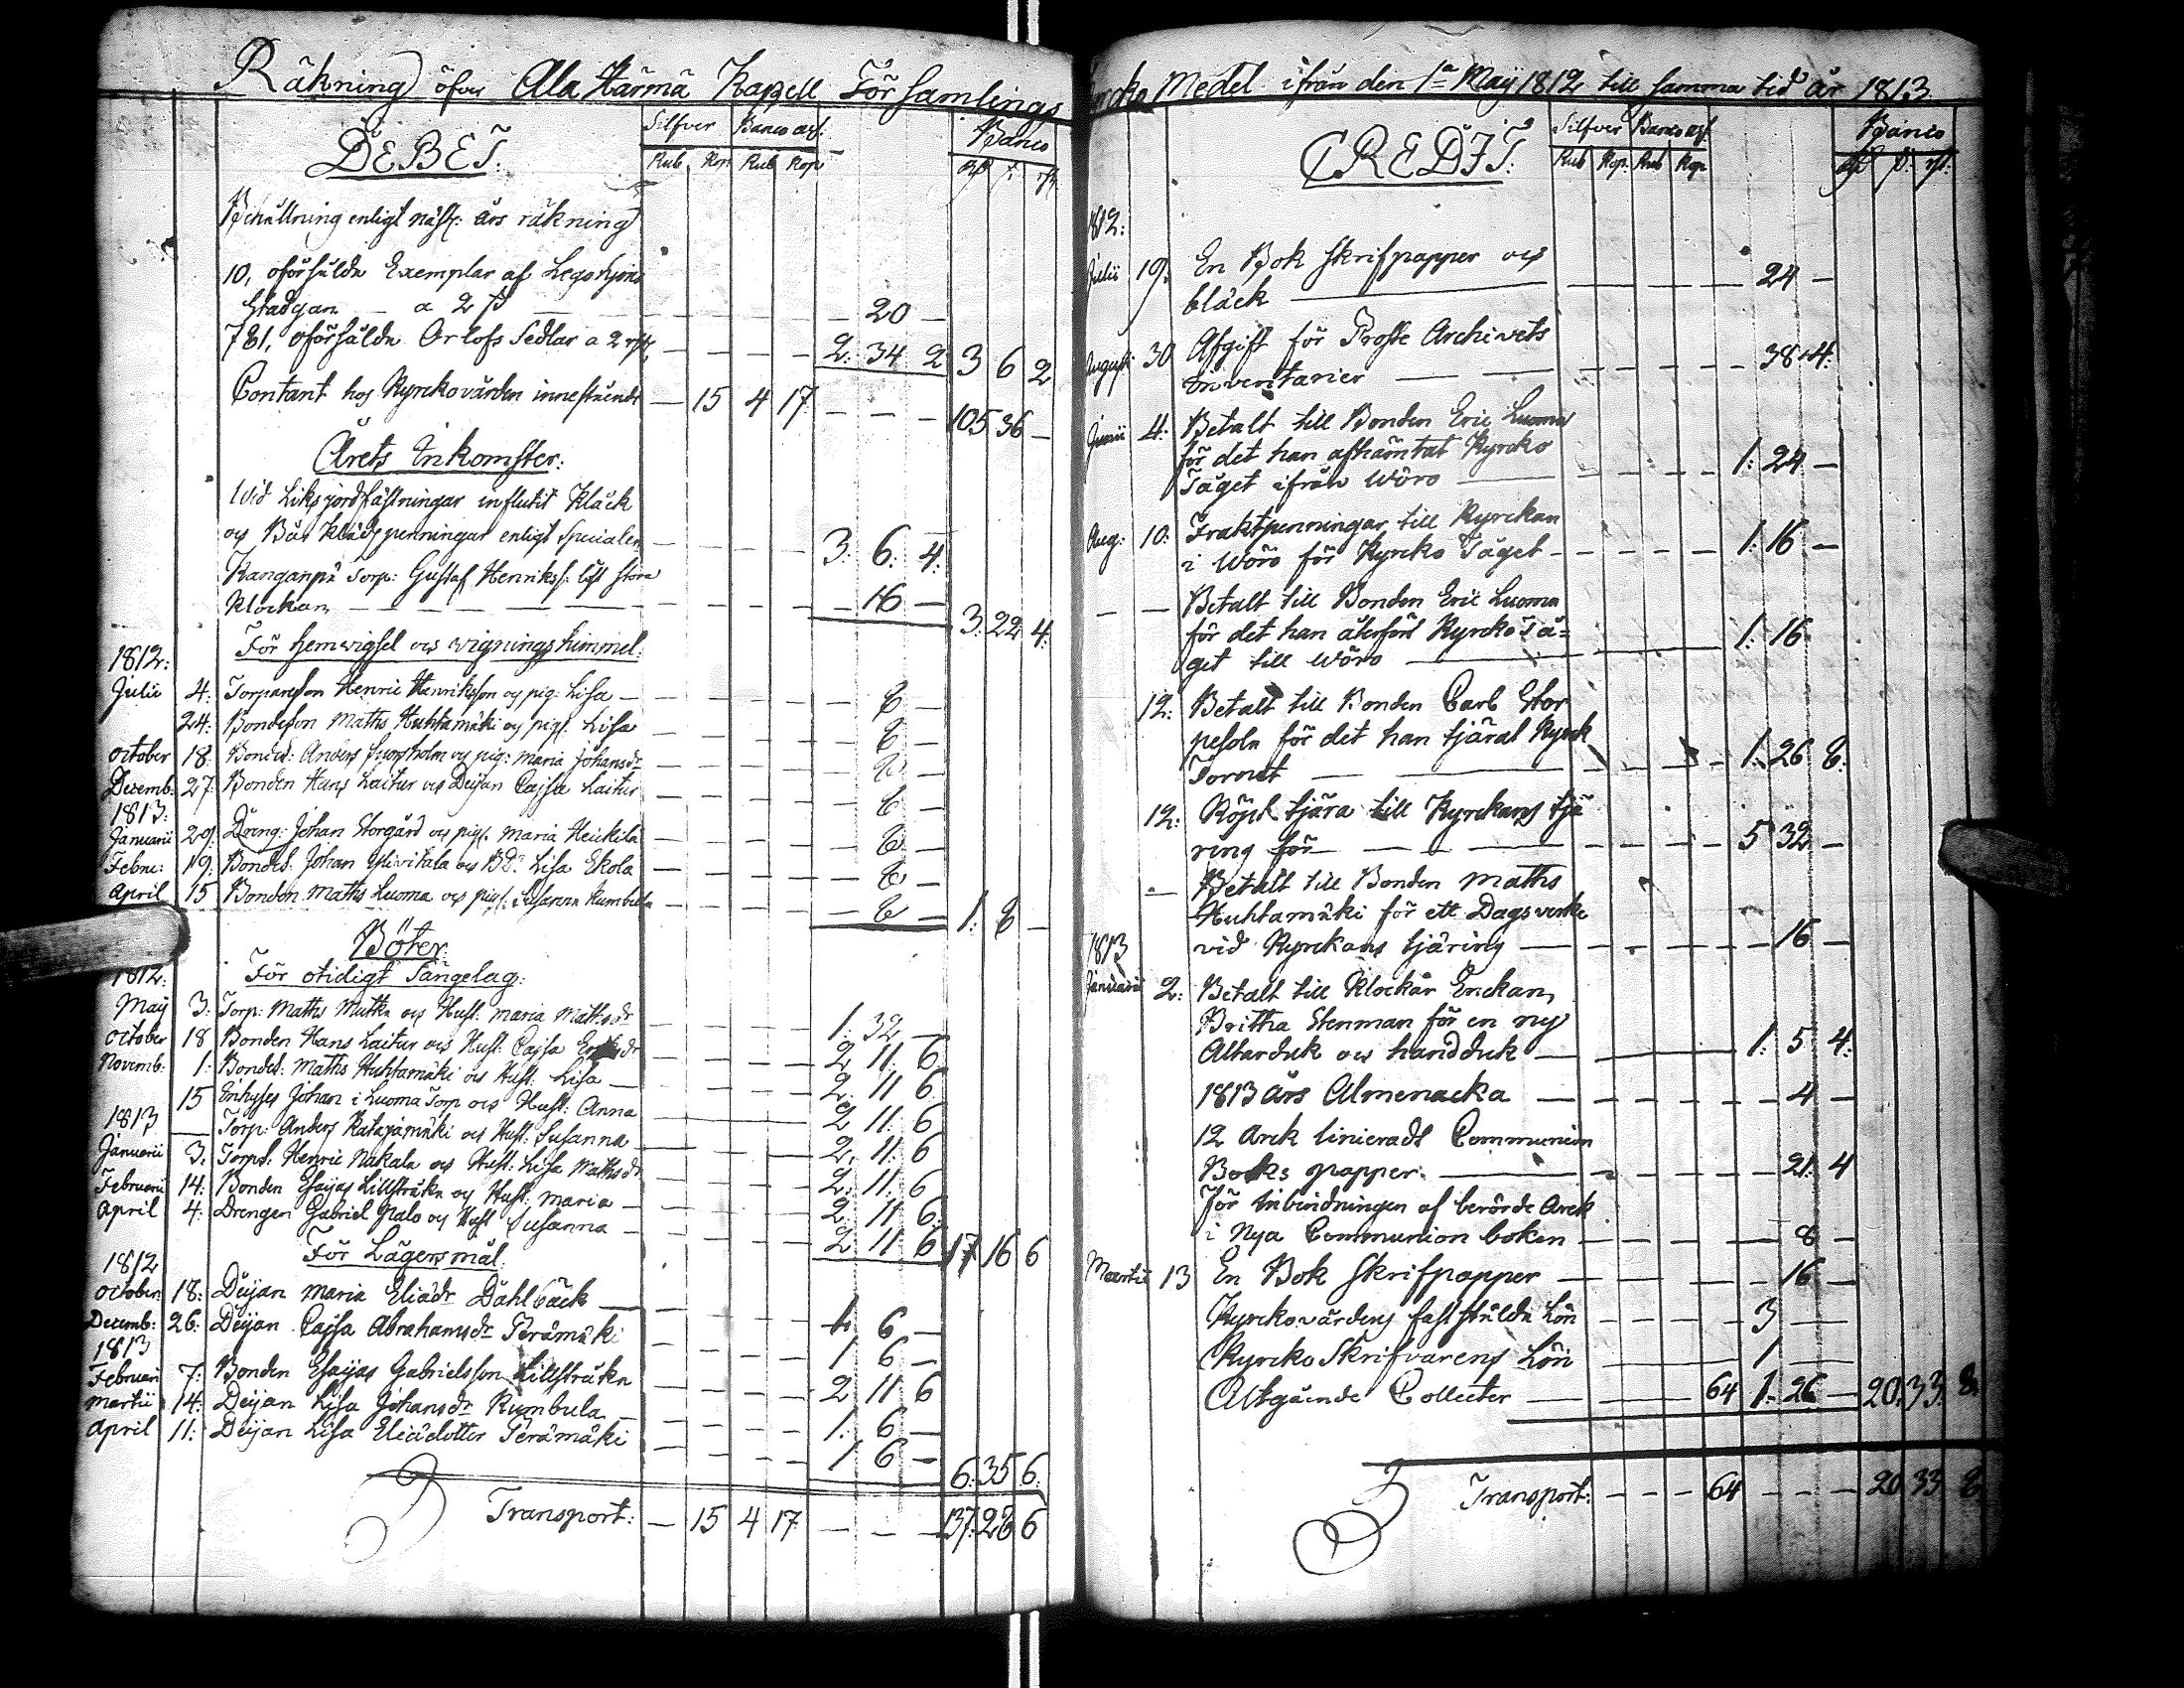 Räkning öfver Ala Härmä Kapell Församlings
DEBET.
Silfver Banco ass:
Banco
Rub Kop Rub Kop
Behållning enligt näst: års räkning
10, oförsålda Exemplar af Legohjons
Stadgan — a 2 ß — 20 —
781, oförsålda Orlofs Sedlar a 2 rst — 2: 34 2 3 6 2
Contant hos Kyrckovärden innestående — 15 4 17 — — — 105 36 —
Årets Inkomster:
Wid Liks jordfästningar influtit Kläck
och Bår Klädspenningar enligt Specialen — 3: 6: 4:
Kanganpä Torp: Gustaf Henrikss: löst stora
Klockan — 16 — 3: 22 4:
För hemvigsel och vigningshimmel:
1812:
Julii 4: Torpareson Henric Henriksson och pig: Lisa — 8 —
24: Bondeson Maths Huhtamäki och pig: Lisa — 8 —
October 18. Bondes: Anders och pig: Maria Johansdr — 8 —
Decemb: 27. Bonden Hans Laitur och Deijan Cajsa Laitur — 8 —
1813:
Januarii 29: Dreng: Johan Storgård och pig: Maria Heickila — 8 —
Febru: 19: Bondes: Johan Ylivitala och Bdr Lisa Ekola — 8 —
April 15 Bonden Maths Luoma och pig: Susanna Kumbula — 8 — 1: 8 —
Böter.
1812: För otidigt Sängelag:
May 3: Torp: Maths Mutka och Hust: Maria Mathsdr — 1: 32 —
October 18 Bonden Hans Laitur och Hust: Cajsa — 2 11: 6
Novemb: 1: Bondes: Maths Huhtamäki och Hust: Lisa — 2: 11 6
15 Enhyses Johan i Luoma Torp och Hust: Anna — 2 11: 6
1813 — Torp: Anders Katajamäki och Hust: Susanna — 2: 11: 6
Januarii 3: Torps: Henric Nakala och Hust: Lisa Mathsdr — 2: 11: 6
Februarii 14: Bonden Esaijas Lillstråka och Hust: Maria — 2: 11 6
April 4: Drengen Gabriel Palo och Hust Susanna — 2: 11: 6 17 16 6
För Lägersmål:
1812
October 18: Deijan Maria Eliædr Dahlbäck — 1: 6 —
Decemb: 26: Deijan Cajsa Abrahamsdr Perämäki — 1 6 —
1813
Februari 7: Bonden Esaijas Gabrielsson Lillstråka — 2 11 6
Martii 14: Deijan Lisa Johansdr Kumbula — 1: 6 —
April 11: Deijan Lisa Eliædotter Perämäki — 1 6 — 6: 35 6.
Transport: — 15 4 17 — — — 137: 28 6
Kyrcko Medel ifrån den 1a May 1812 till samma tid år 1813
CREDIT.
Silfver Banco ass
Banco
Rub Kop: Rub Kop
1812:
Julii 19: En Bok Skrifpapper och
bläck — 24 —
Augusti 30 Afgift för Proste Archivets
Inventarier — 38: 4:
Junii 4: Betalt till Bonden Eric Luoma
för det han afhämtat Kyrcko
Täget ifrån Wöro — 1: 24 —
Aug: 10: Fraktpenningar till Kyrckan
i Wörö för Kyrcko Täget — 1: 16 —
— — Betalt till Bonden Eric Luoma
för det han återfört Kyrcko Tä=
get till Wörö — 1: 16
12: Betalt till Bonden Carl Stor
pesola för det han tjärat Kyrck
Tornet — 1: 26 8:
12: Köpt tjära till Kyrckans tjä
ring för — 5 32 —
— Betalt till Bonden Maths
Huhtamäki för ett Dagsverke
1813 vid Kyrckans tjäring — 16 —
Januarii 2: Betalt till Klockar Enckan
Britha Stenman för en ny
Altarduk och handduk — 1: 5 4:
1813 års Almenacka — 4 —
12 Arck linieradt Communion
Boks papper: — 21: 4
För Inbindningen af berörde Arck
i Nya Communion boken — 8 —
Martii 13 En Bok Skrifpapper — 16 —
Kyrckovärdens fastställda Lön — 3 —
Kyrcko Skrifvarens Lön — 1 —
Utgående Collecter — 64 1: 26 — 20: 33: 8
Transport: — — — 64 — — — 20 33 8